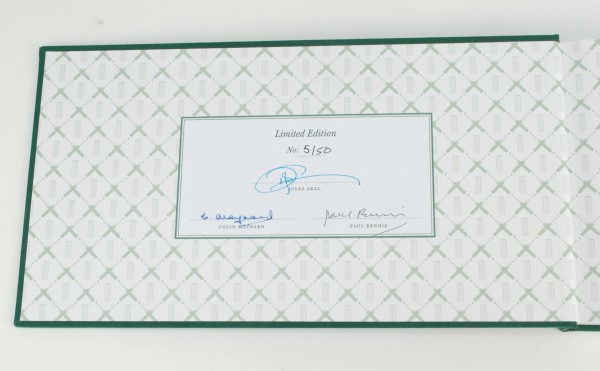 Limited Edition
No: 5/50
JULES AKEL
C. Maynard Paul Rennie
COLIN MAYNARD PAUL RENNIE